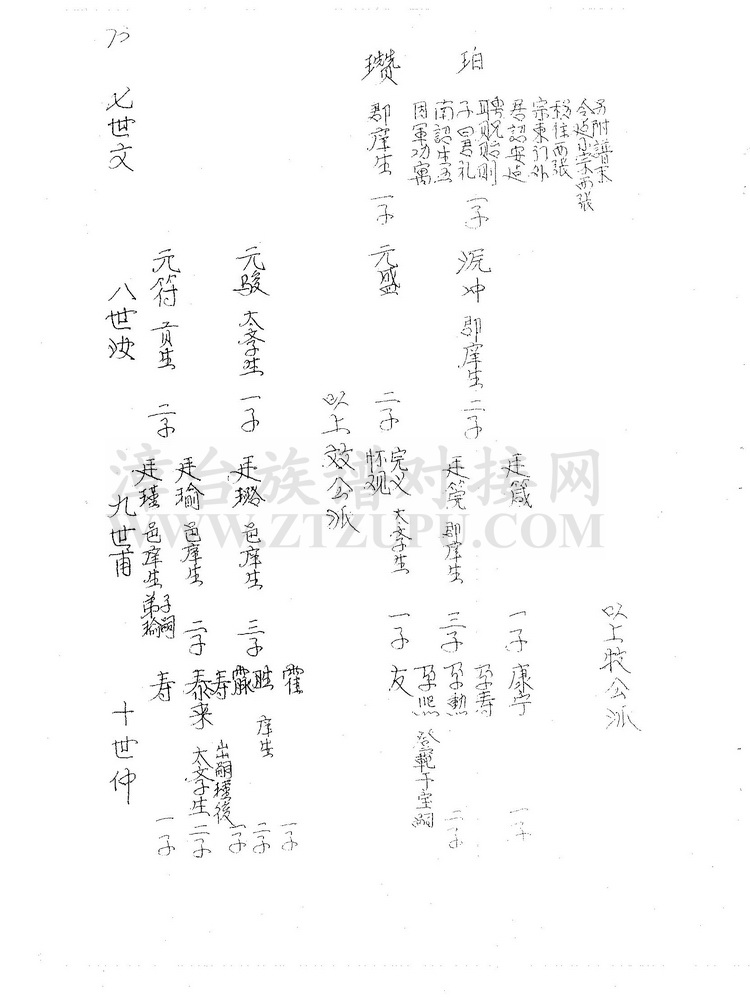 以上牧公派
另附谱末
令逃永宗西张
移住西张
宗东门外
居认安贞
聘贶贻则
子曰君礼
南认生五
因军功寓
珀
一子
沉冲 郡庠生 二子
廷箴
一子 康宁
一子
廷筦 郡庠生
三子
孕寿
孕勲
二子
孕熙 登範子宝嗣
瓒 郡庠生 一子
元盛
二子
完义 太学生
怀观
一子 友
以上效公派
元骏 太学生 一子
廷璐 邑庠生 三子
霍
一子
胜 庠生
二子
霖
一子
元符 贡生 二子
廷瑜 邑庠生 二子
寿 出嗣瑾後
泰来 太学生
二子
廷瑾 邑庠生 弟瑜子嗣
寿
一子
七世文
八世汝
九世甫
十世仲
漳台族谱对接网
WWW.ZTZUPU.COM